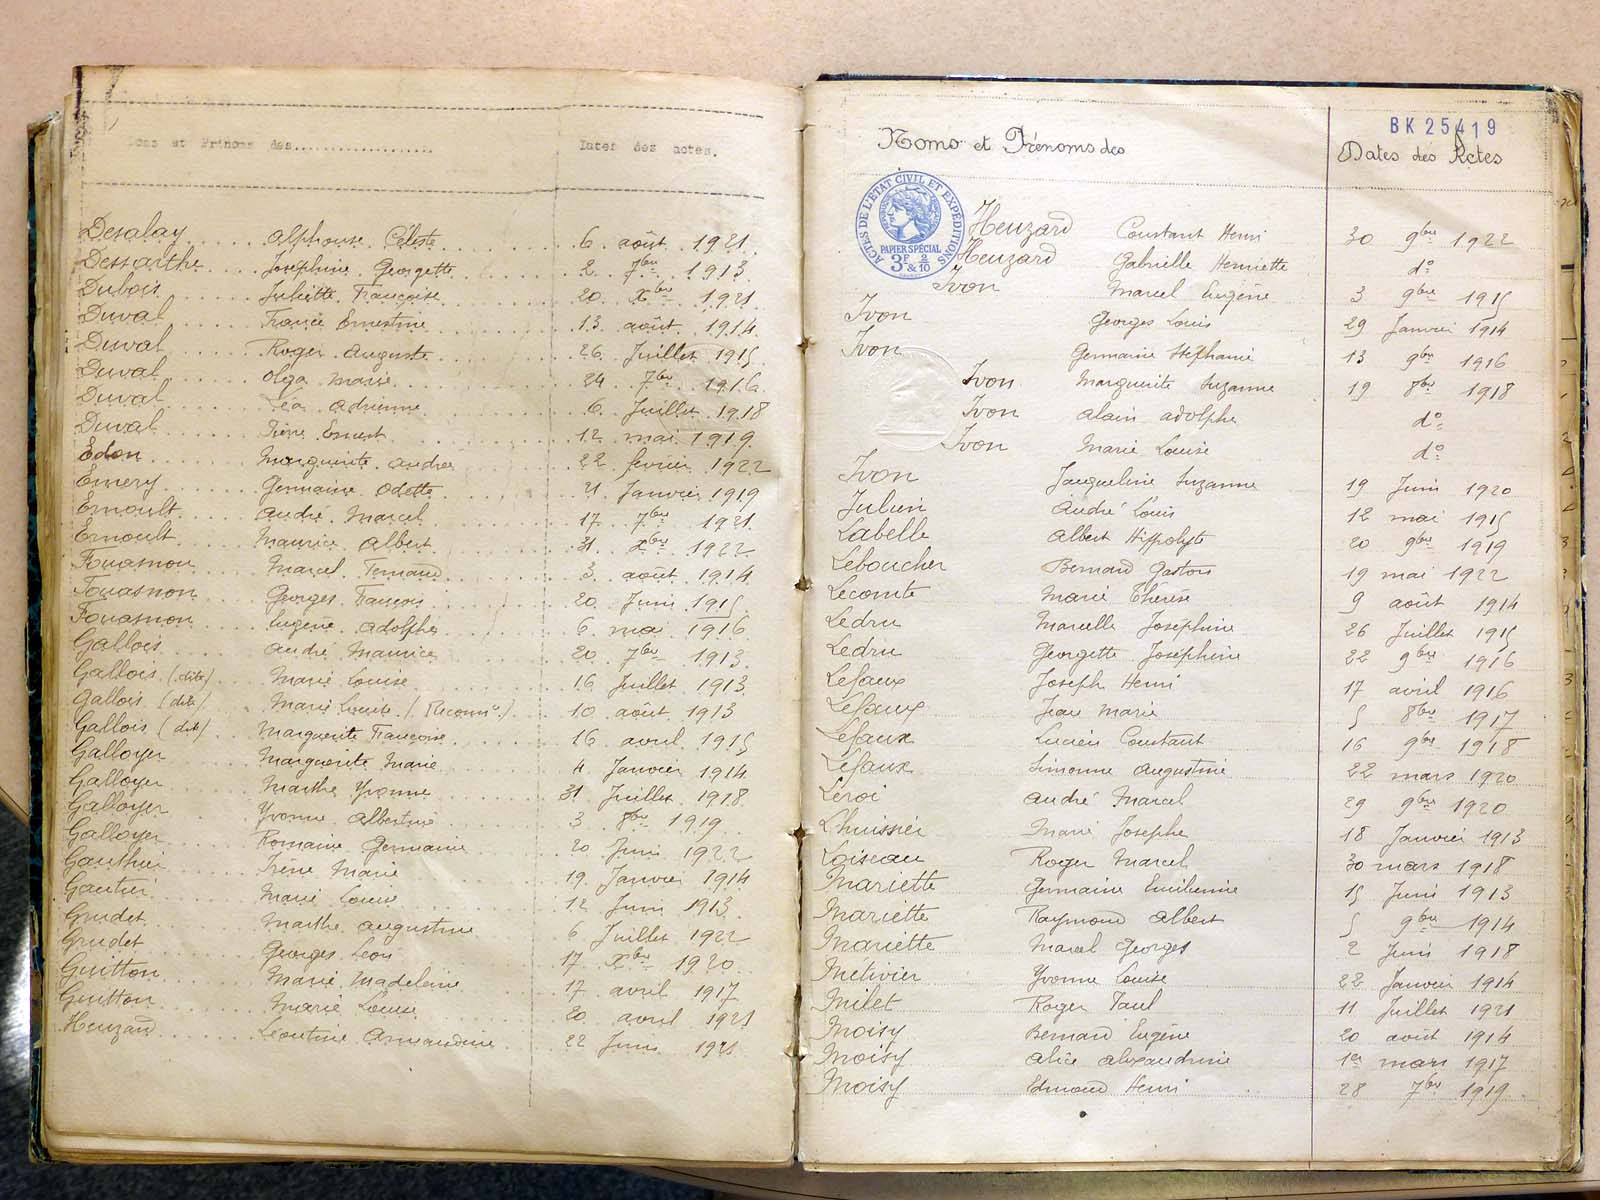 Noms et Prénoms des..................
Dates des actes.
Desalay Alphonse Céleste 6 août 1921
Dessarthe Joséphine Georgette 2 7bre 1913
Dubois Juliette Françoise 20 Xbre 1921
Duval France Ernestine 13 août 1914
Duval Roger Auguste 26 Juillet 1915
Duval Olga Marie 24 7bre 1916
Duval Léa Adrienne 6 Juillet 1918
Duval Pierre Ernest 12 mai 1919
Edon Marguerite Andrée 22 février 1922
Emery Germaine Odette 21 Janvier 1919
Ernoult André Marcel 17 7bre 1921
Ernoult Maurice Albert 31 Xbre 1922
Fouasnon Marcel Fernand 3 août 1914
Fouasnon Georges François 20 Juin 1915
Fouasnon Eugène Adolphe 6 mai 1916
Gallois André Maurice 20 7bre 1913
Gallois (dite) Marie Louise 16 Juillet 1913
Gallois (dite) Marie Louise (Reconn.) 10 août 1913
Gallois (dit) Marguerite Françoise 16 avril 1915
Galloyer Marguerite Marie 4 Janvier 1914
Galloyer Marthe Yvonne 31 Juillet 1918
Galloyer Yvonne Albertine 3 8bre 1919
Galloyer Romaine Germaine 20 Juin 1922
Gauthier Irène Marie 19 Janvier 1914
Gautier Marie Louise 12 Juin 1913
Grudet Marthe Augustine 6 Juillet 1922
Grudet Georges Léon 17 Xbre 1920
Guitton Marie Madeleine 17 avril 1917
Guitton Marie Louise 20 avril 1921
Heuzard Léontine Armandine 22 Juin 1921
BK 25419
Noms et Prénoms des
Dates des Actes
ACTES DE L'ÉTAT CIVIL ET EXPÉDITIONS
PAPIER SPÉCIAL
3F & 2/10
Heuzard Constant Henri 30 9bre 1922
Heuzard Gabrielle Henriette do
Ivon Marcel Eugène 3 9bre 1915
Ivon Georges Louis 29 Janvier 1914
Ivon Germaine Stéphanie 13 9bre 1916
Ivon Marguerite Suzanne 19 8bre 1918
Ivon Alain Adolphe do
Ivon Marie Louise do
Ivon Jacqueline Suzanne 19 Juin 1920
Julien André Louis 12 mai 1915
Labelle Albert Hippolyte 20 9bre 1919
Leboucher Bernard Gaston 19 mai 1922
Lecomte Marie Thérèse 9 août 1914
Ledru Marcelle Joséphine 26 Juillet 1915
Ledru Georgette Joséphine 22 9bre 1916
Lefaux Joseph Henri 17 avril 1916
Lefaux Jean Marie 5 8bre 1917
Lefaux Lucien Constant 16 9bre 1918
Lefaux Simonne Augustine 22 mars 1920
Leroi André Marcel 29 9bre 1920
Lhuissier Marie Josephe 18 Janvier 1913
Loiseau Roger Marcel 30 mars 1918
Mariette Germaine Emilienne 15 Juin 1913
Mariette Raymond Albert 5 9bre 1914
Mariette Marcel Georges 2 Juin 1918
Métivier Yvonne Louise 22 Janvier 1914
Milet Roger Paul 11 Juillet 1921
Moisy Bernard Eugène 20 août 1914
Moisy Alice Alexandrine 1er mars 1917
Moisy Edmond Henri 28 7bre 1919